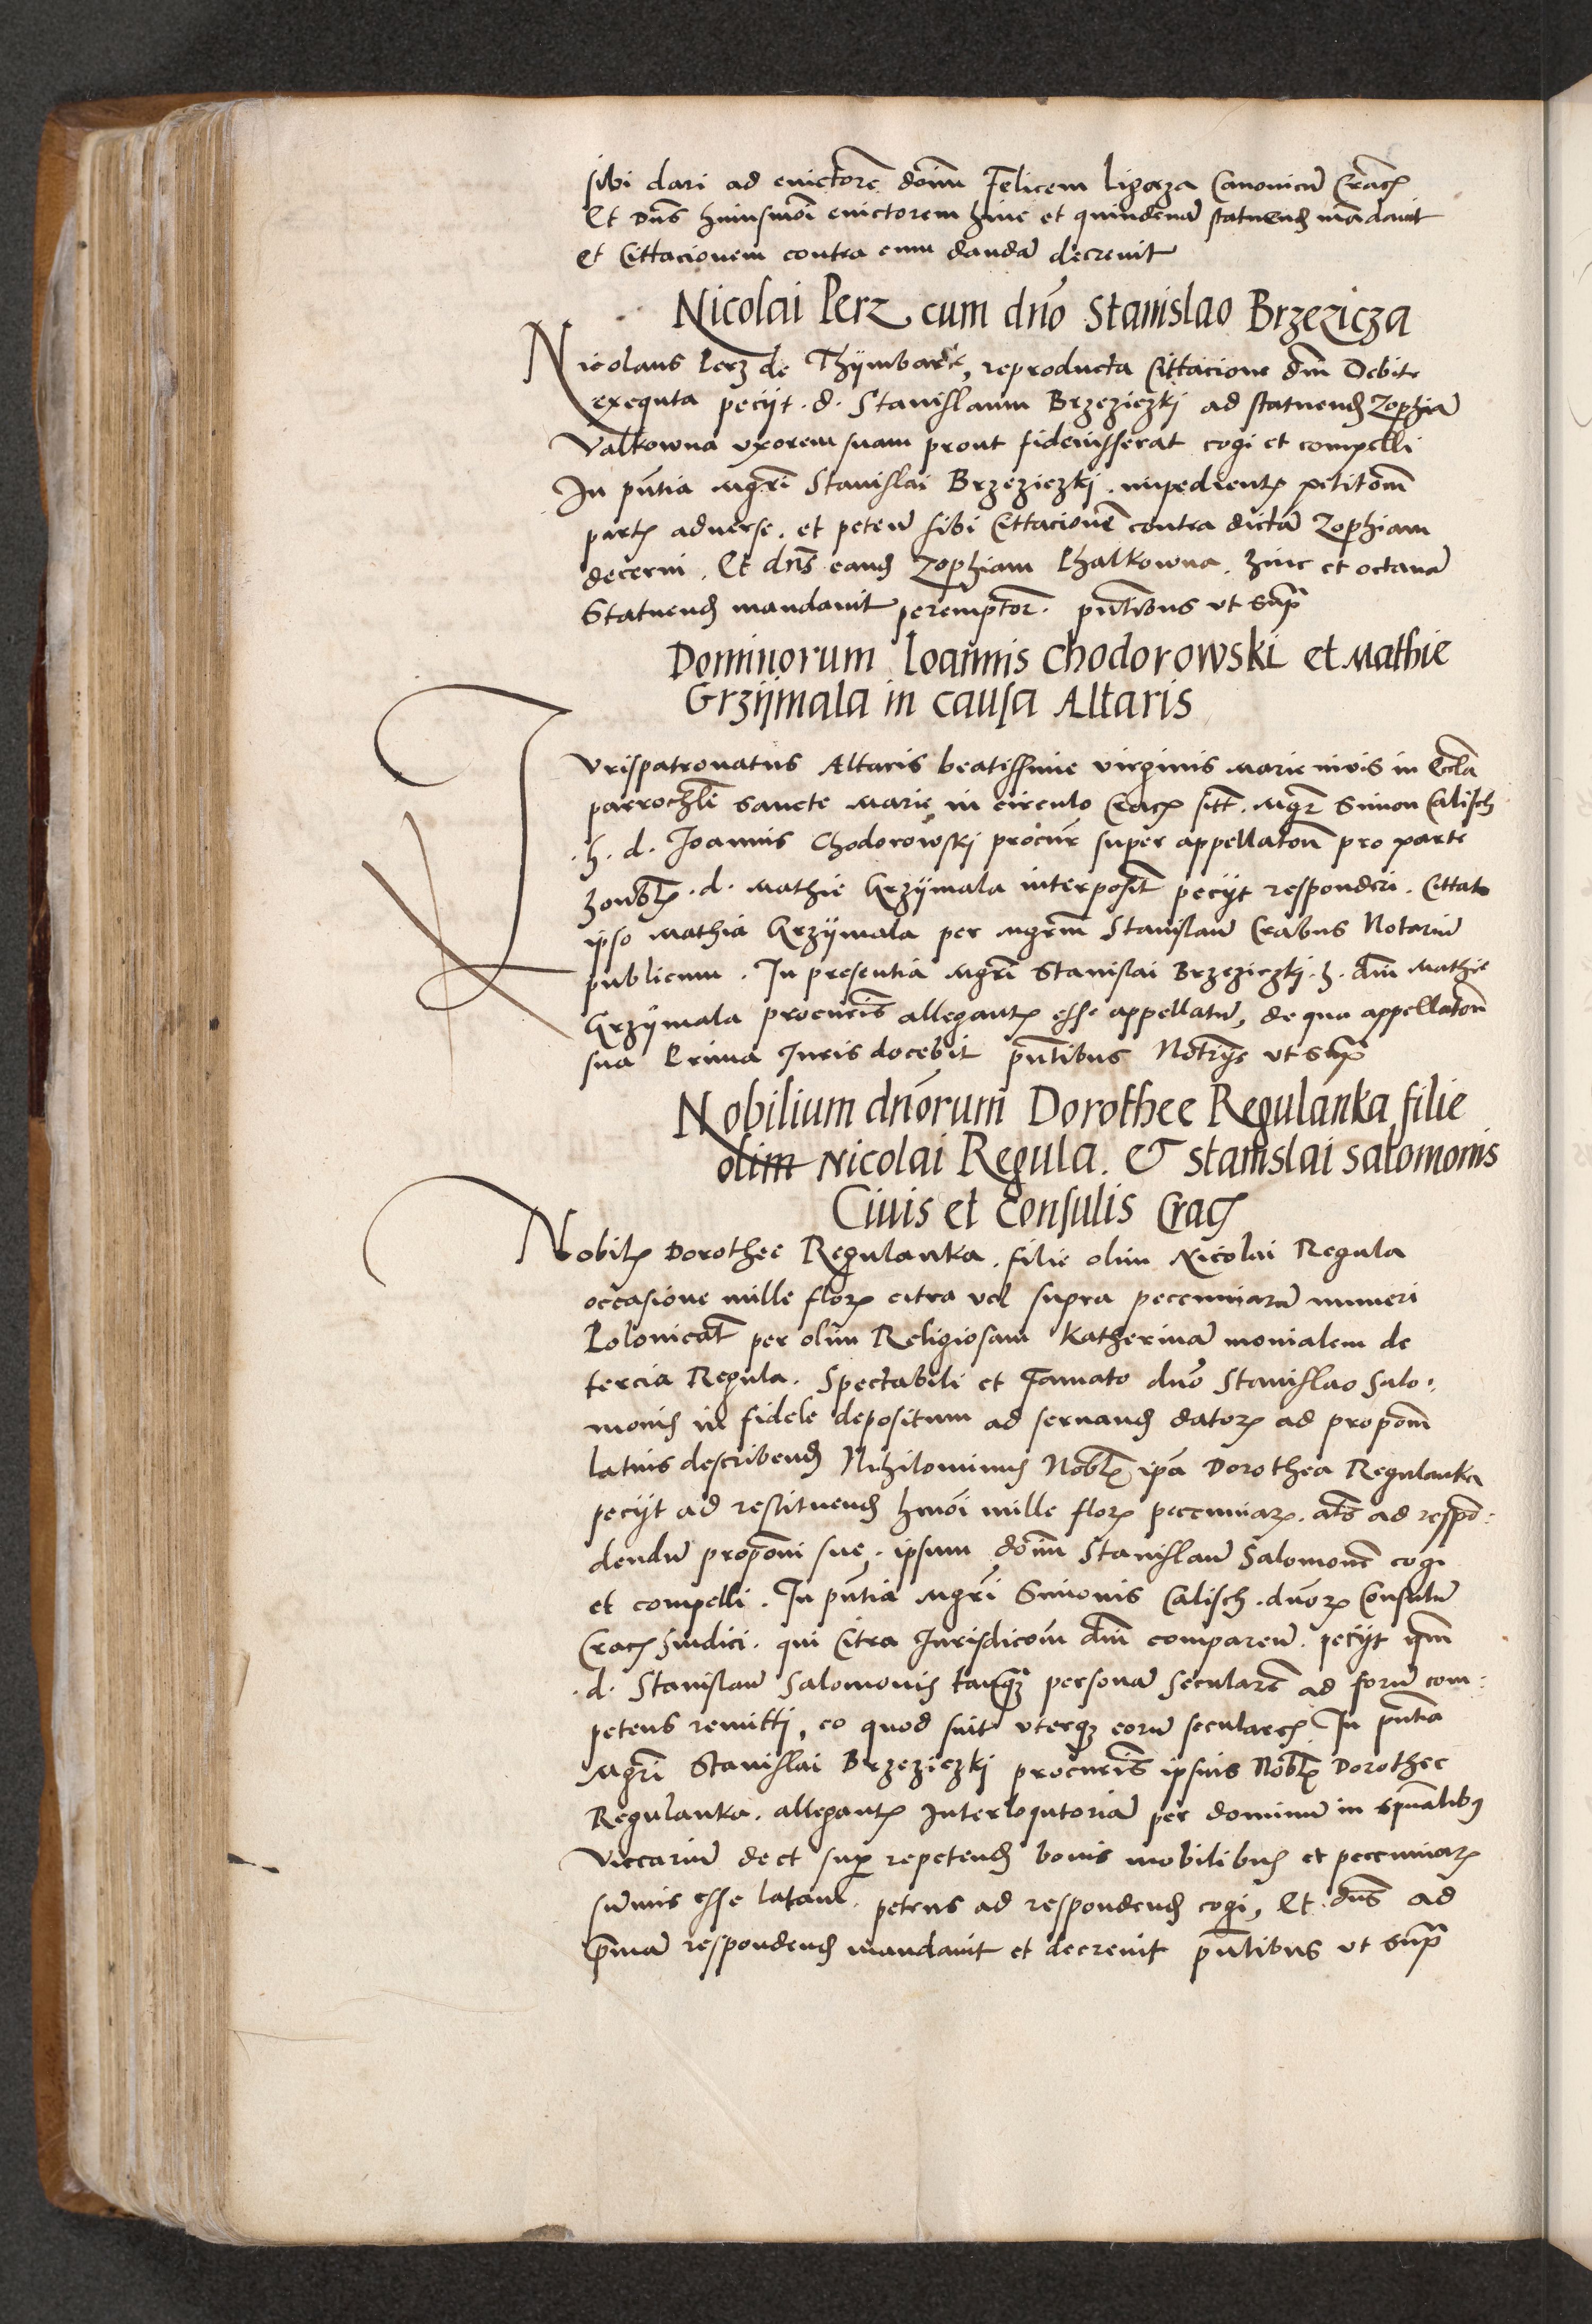 sibi dari ad euictorē dom̄ Felicem Ligąza Canonicū Crac̄
Et Dn̄s huiusmōi euictorem hinc et quindenā statuend̄ mādauit
et Cittacionem contra eum dandā decreuit
Nicolai Perz cum dnō Stanislao Brzezicza
Nicolaus Perz de Thÿmbark, reproducta Cittacione dn̄i Debite
exequta peciit .d. Stanislaum Brzeziczkj ad statuend̄ Zophiā
Valkowna vxorem suam prout fideiusserat cogi et compelli
In pn̄tia Mgr̄i Stanislai Brzeziczkj . impedient̄ petitōm
part̄ aduerse . et peteñ sibi Cittacionē contra dictā Zophiam
decerni . Et dn̄s eand̄ Zophiam Phalkowna . hinc et octauā
Statuend̄ mandauit peremptor̄ . pn̄tibus vt supr̄
Dominorum Ioannis Chodorowski et Mathie
Grzÿmala in causa Altaris
Iurispatronatus Altaris beatissime virginis Marie niuis in Eccla
parrochl̄i sancte Marie in circulo Crac̄ sitt̄ . Mgr̄ Simon Calisch
.h. d. Joannis Chodorowskj procur̄ super appellatōn̄ pro parte
honbl̄ . d. Mathie Grzÿmala interposit̄ peciit responderi . Cittato
ipso Mathia Grzÿmala per Mgrm̄ Stanislaū Crabus Notariū
publicum . In presentia Mgr̄i Stanislai Brzeziczkj . h. dn̄i Mathie
Grzÿmala procur̄is allegant̄ esse appellatū, de qua appellatōn̄
sua Prima Iuris docebit pn̄tibus Notrijs vt supr̄
Nobilium dnōrum Dorothee Regulanka filie
olim Nicolai Regula . & Stanislai Salomonis
Ciuis et Consulis Crac̄
Nobil̄ Dorothee Regulanka . filie olim Nicolai Regula
occasione mille flor̄ citra vel supra peccuniarū numeri
Polonicat̄ per olim Religiosam Katherinā monialem de
tercia Regula . Spectabili et Famato dnō Stanislao Salo:
monis in fidele depositum ad seruand̄ dator̄ ad propōm
latius describend̄ Nihilominus Nobl̄ ipā Dorothea Regulanka
peciit ad restituend̄ hmōi mille flor̄ peccuniar̄ . at̄s ad respō:
dendū propōni sue . ipsum dom̄ Stanislaū Salomonē cogi
et compelli . In pn̄tia Mgr̄i Simonis Calisch . dnōr̄ Consulū
Crac̄ Sindici . qui Citra Iurisdicōm dn̄i compareñ . peciit ip̄m
. d. Stanislaū Salomonis tanq̄ȝ personā Secularē ad forū com:
petens remitti, eo quod sint vterqȝ eorū seculares In pn̄tia
Mgr̄i Stanislai Brzeziczkj procur̄is ipsius Nobl̄ Dorothee
Regulanka . allegant̄ Interloqutoriā per dominū in spūalibus
Viccariū de et sup̄ repetend̄ bonis mobilibus et peccuniar̄
sūmis esse latam . petens ad respondend̄ cogi, Et dn̄s ad
p̄mā respondend̄ mandauit et decreuit pn̄tibus vt supr̄